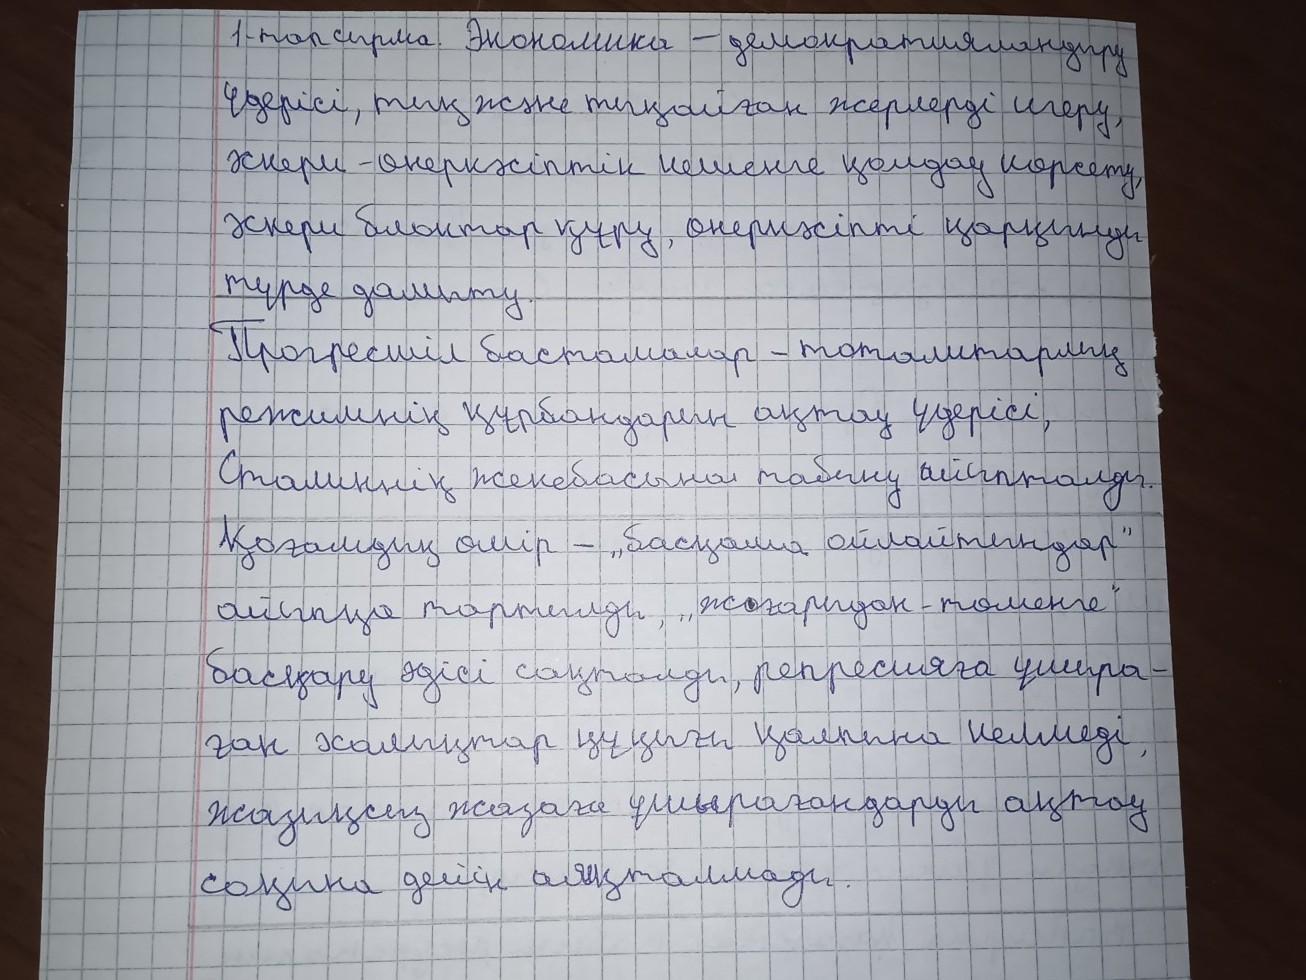 1-тапсырма. Экономика – демократияландыру
үдерісі, тың және тыңайған жерлерді игеру,
әскери-өнеркәсіптік кешенге қолдау көрсету,
әскери блоктар құру, өнеркәсіпті қарқынды
түрде дамыту.
Прогресшіл бастамалар – тоталитарлық
режимнің құрбандарын ақтау үдерісі,
Сталиннің жекебасына табыну айыпталды.
Қоғамдық өмір – „басқаша ойлайтындар"
айыпқа тартылды, „жоғарыдан-төменге"
басқару әдісі сақталды, репрессияға ұшыра-
ған халықтар құқығы қалпына келмеді,
жазықсыз жазаға ұшырағандарды ақтау
соңына дейін аяқталмады.